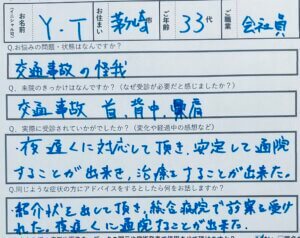 お名前 Y・T お住まい 茅ヶ崎市 ご年齢 33代 ご職業 会社員
Q.お悩みの問題・状態はなんですか?
交通事故の怪我
Q. 来院のきっかけはなんですか?(なぜ受診が必要だと感じましたか?)
交通事故 首、背中、肩
Q. 実際に受診されていかがでしたか?(変化や経過中の感想など)
・夜遅くに対応して頂き、安定して通院
することが出来き、治療をすることが出来た。
Q.同じような症状の方にアドバイスをするとしたら何をお話しますか?
・紹介状を出して頂き、総合病院で診察を受け
れた。夜遅くに通院することが出来た。